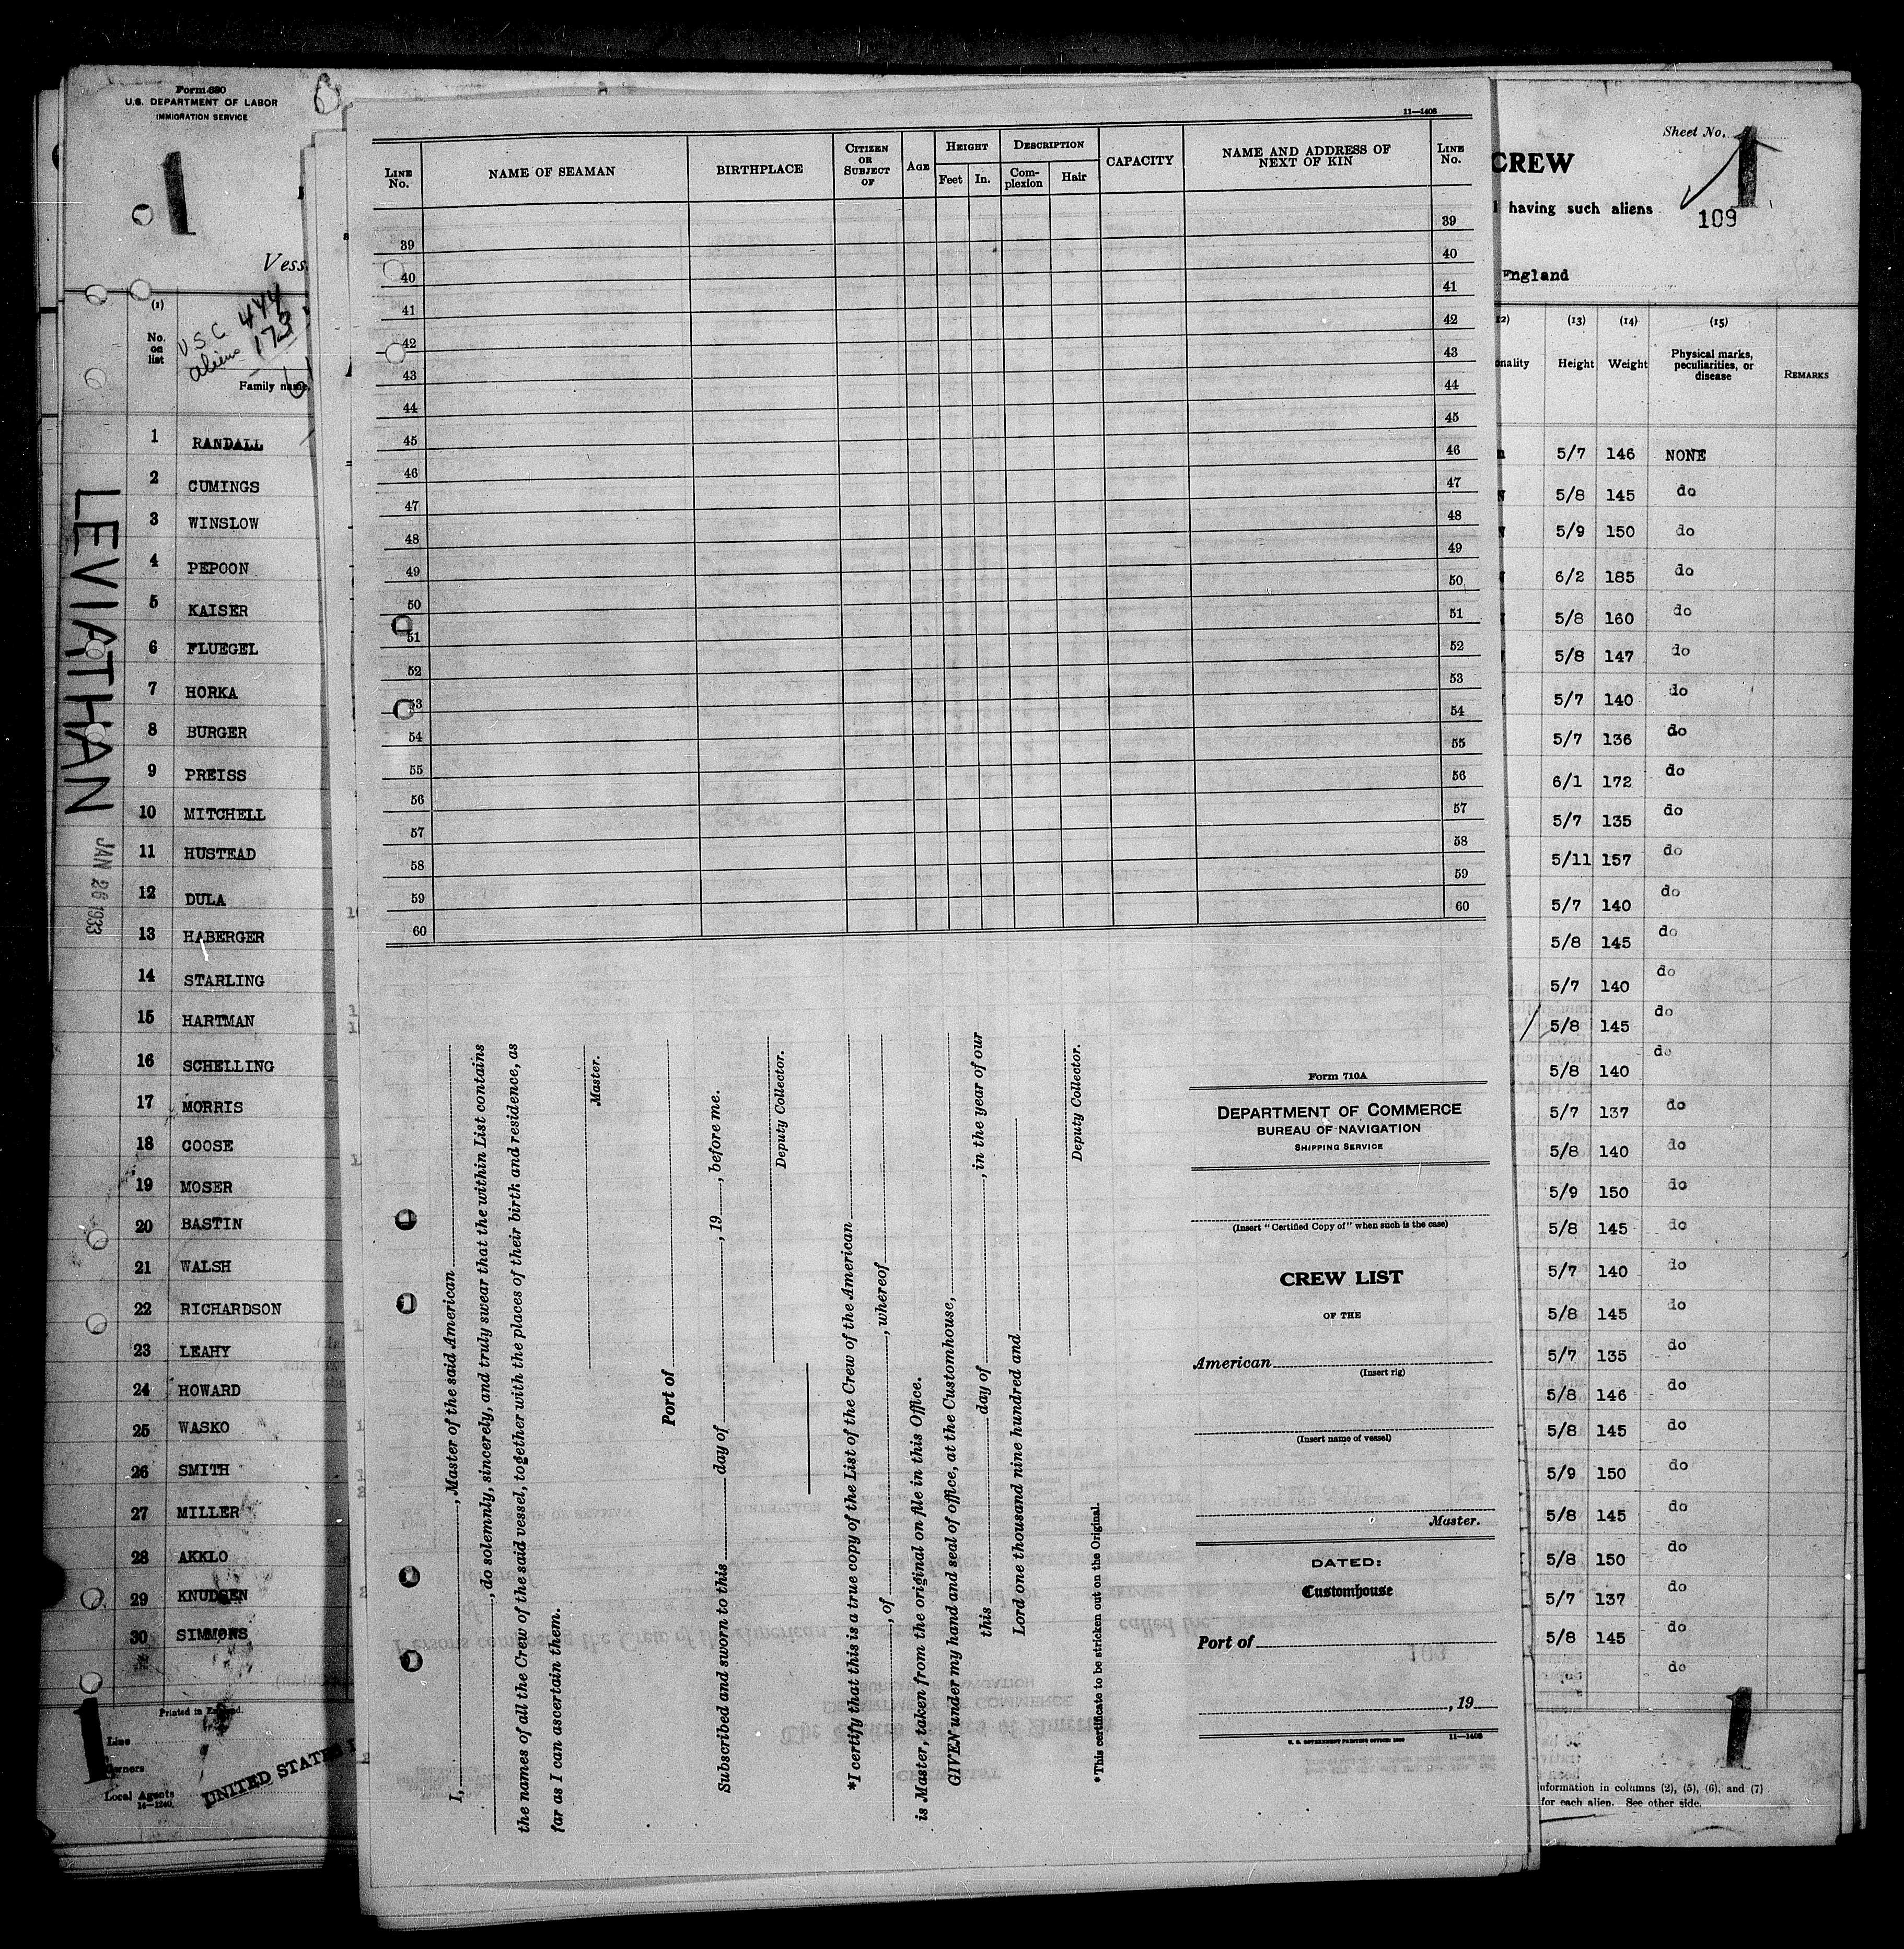 Form 680
U.S. DEPARTMENT OF LABOR
IMMIGRATION SERVICE
1
Vess
(1)
No. on list
U.S.C. 444
aliens 173
Family name
1 RANDALL
2 CUMINGS
3 WINSLOW
4 PEPOON
5 KAISER
6 FLUEGEL
7 HORKA
8 BURGER
9 PREISS
10 MITCHELL
11 HUSTEAD
12 DULA
13 HABERGER
14 STARLING
15 HARTMAN
16 SCHELLING
17 MORRIS
18 GOOSE
19 MOSER
20 BASTIN
21 WALSH
22 RICHARDSON
23 LEAHY
24 HOWARD
25 WASKO
26 SMITH
27 MILLER
28 AKKLO
29 KNUDSEN
30 SIMMONS
LEVIATHAN
JAN 26 1933
Printed in England.
1
Line
Owners
Local Agents
14—1240
UNITED STATES
11—1408
LINE No. NAME OF SEAMAN BIRTHPLACE CITIZEN OR SUBJECT OF AGE HEIGHT Feet In. DESCRIPTION Complexion Hair CAPACITY NAME AND ADDRESS OF NEXT OF KIN LINE No.
39 39
40 40
41 41
42 42
43 43
44 44
45 45
46 46
47 47
48 48
49 49
50 50
51 51
52 52
53 53
54 54
55 55
56 56
57 57
58 58
59 59
60 60
I, , Master of the said American
, do solemnly, sincerely, and truly swear that the within List contains
the names of all the Crew of the said vessel, together with the places of their birth and residence, as
far as I can ascertain them.
Master.
Port of
Subscribed and sworn to this day of , 19 , before me.
Deputy Collector.
*I certify that this is a true copy of the List of the Crew of the American
, of , whereof
is Master, taken from the original on file in this Office.
GIVEN under my hand and seal of office, at the Customhouse,
this day of , in the year of our
Lord one thousand nine hundred and
Deputy Collector.
*This certificate to be stricken out on the Original.
Form 710A
DEPARTMENT OF COMMERCE
BUREAU OF NAVIGATION
SHIPPING SERVICE
(Insert "Certified Copy of" when such is the case)
CREW LIST
OF THE
American
(Insert rig)
(Insert name of vessel)
Master.
DATED:
Customhouse
Port of
, 19
U. S. GOVERNMENT PRINTING OFFICE 11—1408
Sheet No. 1
CREW
having such aliens
109
England
(12) (13) (14) (15)
onality Height Weight Physical marks, peculiarities, or disease REMARKS
5/7 146 NONE
5/8 145 do
5/9 150 do
6/2 185 do
5/8 160 do
5/8 147 do
5/7 140 do
5/7 136 do
6/1 172 do
5/7 135 do
5/11 157 do
5/7 140 do
5/8 145 do
5/7 140 do
5/8 145 do
5/8 140 do
5/7 137 do
5/8 140 do
5/9 150 do
5/8 145 do
5/7 140 do
5/8 145 do
5/7 135 do
5/8 146 do
5/8 145 do
5/9 150 do
5/8 145 do
5/8 150 do
5/7 137 do
5/8 145 do
do
1
nformation in columns (2), (5), (6), and (7)
for each alien. See other side.